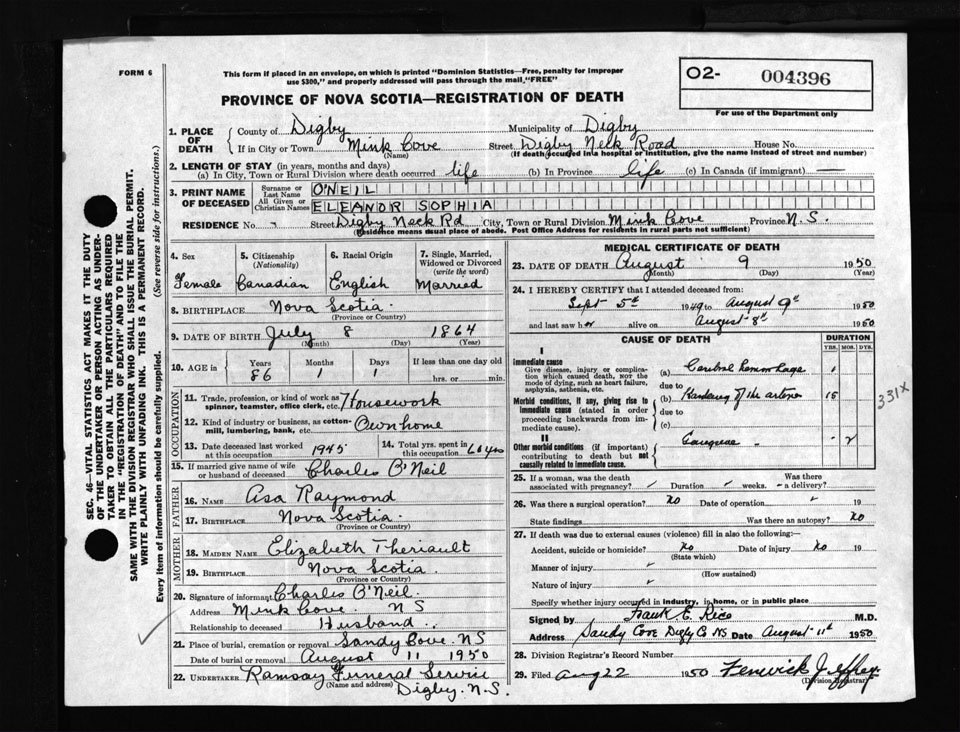 FORM 6
This form if placed in an envelope, on which is printed "Dominion Statistics—Free, penalty for improper
use $300," and properly addressed will pass through the mail, "FREE"
O2- 004396
For use of the Department only
PROVINCE OF NOVA SCOTIA—REGISTRATION OF DEATH
1. PLACE OF DEATH { County of Digby Municipality of Digby
If in City or Town Mink Cove Street Digby Neck Road House No.
(Name) (If death occurred in a hospital or institution, give the name instead of street and number)
2. LENGTH OF STAY (in years, months and days)
(a) In City, Town or Rural Division where death occurred life (b) In Province life (c) In Canada (if immigrant) —
3. PRINT NAME OF DECEASED { Surname or Last Name O'NEIL
All Given or Christian Names ELEANOR SOPHIA
RESIDENCE No. - Street Digby Neck Rd City, Town or Rural Division Mink Cove Province N.S.
(Residence means usual place of abode. Post Office Address for residents in rural parts not sufficient)
4. Sex Female
5. Citizenship (Nationality) Canadian
6. Racial Origin English
7. Single, Married, Widowed or Divorced (write the word) Married
8. BIRTHPLACE Nova Scotia
(Province or Country)
9. DATE OF BIRTH July 8 1864
(Month) (Day) (Year)
10. AGE in { Years 86 Months 1 Days 1 If less than one day old
hrs. or min.
OCCUPATION
11. Trade, profession, or kind of work as spinner, teamster, office clerk, etc. Housework
12. Kind of industry or business, as cotton-mill, lumbering, bank, etc. Own home
13. Date deceased last worked at this occupation 1945
14. Total yrs. spent in this occupation 60 yrs
15. If married give name of wife or husband of deceased Charles O'Neil
FATHER
16. NAME Asa Raymond
17. BIRTHPLACE Nova Scotia
(Province or Country)
MOTHER
18. MAIDEN NAME Elizabeth Theriault
19. BIRTHPLACE Nova Scotia
(Province or Country)
20. Signature of informant Charles O'Neil
Address Mink Cove. N S
Relationship to deceased Husband
21. Place of burial, cremation or removal Sandy Cove. NS
Date of burial or removal August 11 1950
22. UNDERTAKER Ramsay Funeral Service
(Name and address) Digby. N.S.
MEDICAL CERTIFICATE OF DEATH
23. DATE OF DEATH August 9 1950
(Month) (Day) (Year)
24. I HEREBY CERTIFY that I attended deceased from:
Sept 5th 1949 to August 9th 1950
and last saw her alive on August 8th 1950
CAUSE OF DEATH
DURATION
YRS. MOS. DYS.
I
Immediate cause
Give disease, injury or complication which caused death, NOT the mode of dying, such as heart failure, asphyxia, asthenia, etc.
(a) Cerebral hemorrhage 1
due to
Morbid conditions, if any, giving rise to immediate cause (stated in order proceeding backwards from immediate cause).
(b) Hardening of the arteries 15
due to
(c)
331X
II
Other morbid conditions (if important) contributing to death but not causally related to immediate cause.
Gangrene 2
25. If a woman, was the death associated with pregnancy? Duration weeks. Was there a delivery?
26. Was there a surgical operation? No Date of operation 19
State findings Was there an autopsy? No
27. If death was due to external causes (violence) fill in also the following:—
Accident, suicide or homicide? No Date of injury No 19
(State which)
Manner of injury
(How sustained)
Nature of injury
Specify whether injury occurred in industry, in home, or in public place
Signed by Frank E. Rice M.D.
Address Sandy Cove Digby Co NS Date August 11th 1950
28. Division Registrar's Record Number
29. Filed Aug 22 1950 Fenwick Jeffrey
(Division Registrar)
SEC. 46—VITAL STATISTICS ACT MAKES IT THE DUTY
OF THE UNDERTAKER OR PERSON ACTING AS UNDER-
TAKER TO OBTAIN ALL THE PARTICULARS REQUIRED
IN THE "REGISTRATION OF DEATH" AND TO FILE THE
SAME WITH THE DIVISION REGISTRAR WHO SHALL ISSUE THE BURIAL PERMIT.
WRITE PLAINLY WITH UNFADING INK. THIS IS A PERMANENT RECORD.
Every item of information should be carefully supplied. (See reverse side for instructions.)